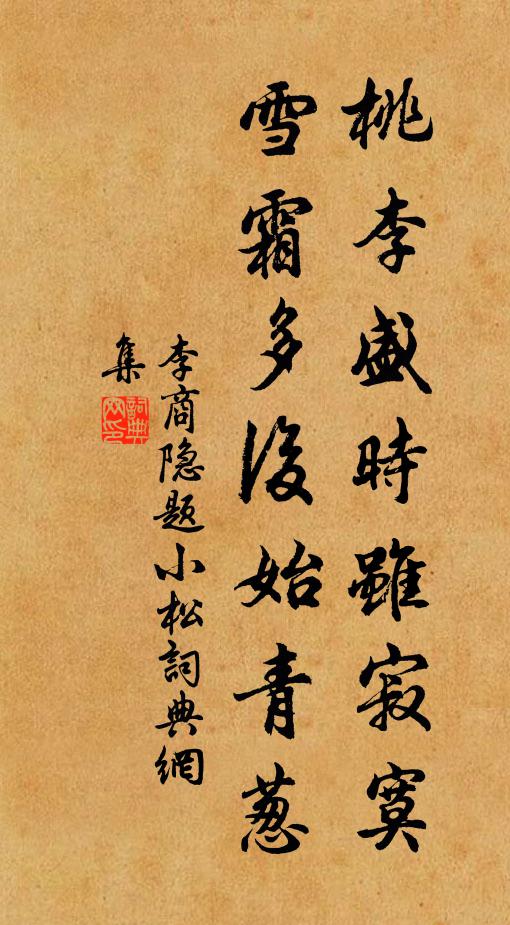 桃李盛時雖寂寞
雪霜多後始青葱
李商隐题小松詞典網
集
詞典網印